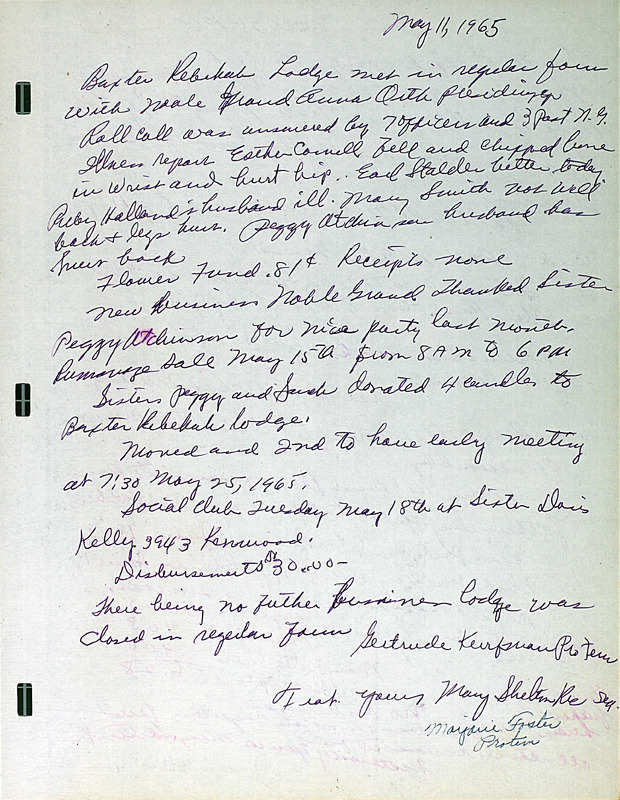 May 11, 1965
Baxter Rebekah Lodge met in regular form
with Noble Grand Anna Orth presiding
Roll call was answered by 7 officers and 3 Past N.G.
Illness report Esther Cornell fell and chipped bone
in wrist and hurt hip.. Earl Stalder better today
Ruby Holland's husband ill. Mary Smith not well
back & legs hurt. Peggy Atchinson husband has
hurt back
Flower Fund .81¢ Receipts none
New Business Noble Grand Thanked Sister
Peggy Atchinson for nice party last month.
Rummage Sale May 15th from 8 AM to 6 PM
Sisters Peggy and Sarah donated 4 candles to
Baxter Rebekah Lodge.
Moved and 2nd to have early meeting
at 7:30 May 25, 1965.
Social Club Tuesday May 18th at Sister Doris
Kelly 3943 Kenwood.
Disbursements 30.00-
There being no futher business lodge was
closed in regular form Gertrude Pro Tem
Frat. yours Mary Shelton Rec Sec.
Marjorie Foster
Protem